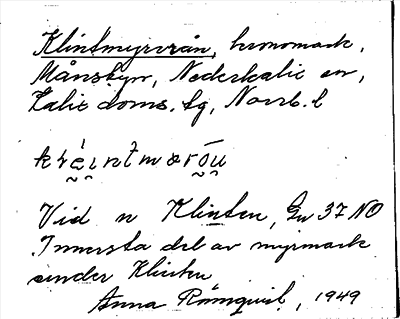 Klintmyrvrån, kronomark,
Månsbyn, Nederkalix sn,
Kalix doms. tg, Norrb. l
Vid n Klinten, Gu 37 NO
Innersta del av myrmark
under Klinten
Anna Rönnqvist, 1949